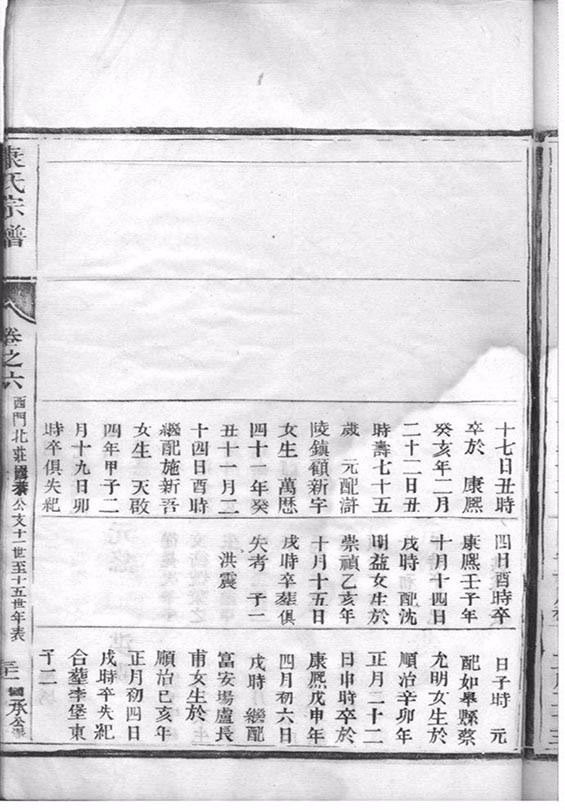 十七日丑時
卒於 康熙
癸亥年二月
二十二日丑
時壽七十五
歲 元配滸
陵鎮顧新字
女生 萬歷
四十一年癸
丑十一月二
十四日酉時
繼配施新吾
女生 天啟
四年甲子二
月十九日卯
時卒俱失紀
四日酉時卒
康熙壬子年
十月十四日
戌時 配沈
明益女生於
崇禎乙亥年
十月十五日
戌時卒葬俱
失考 子一
洪震
日子時 元
配如臯縣蔡
允明女生於
順治辛卯年
正月二十二
日申時卒於
康熙戊申年
四月初六日
戌時 繼配
富安場盧長
甫女生於
順治己亥年
正月初四日
戌時卒失紀
合葬李堡東
氏宗譜
卷之六
西門北莊國泰公支十一世至十五世年表
國承公派